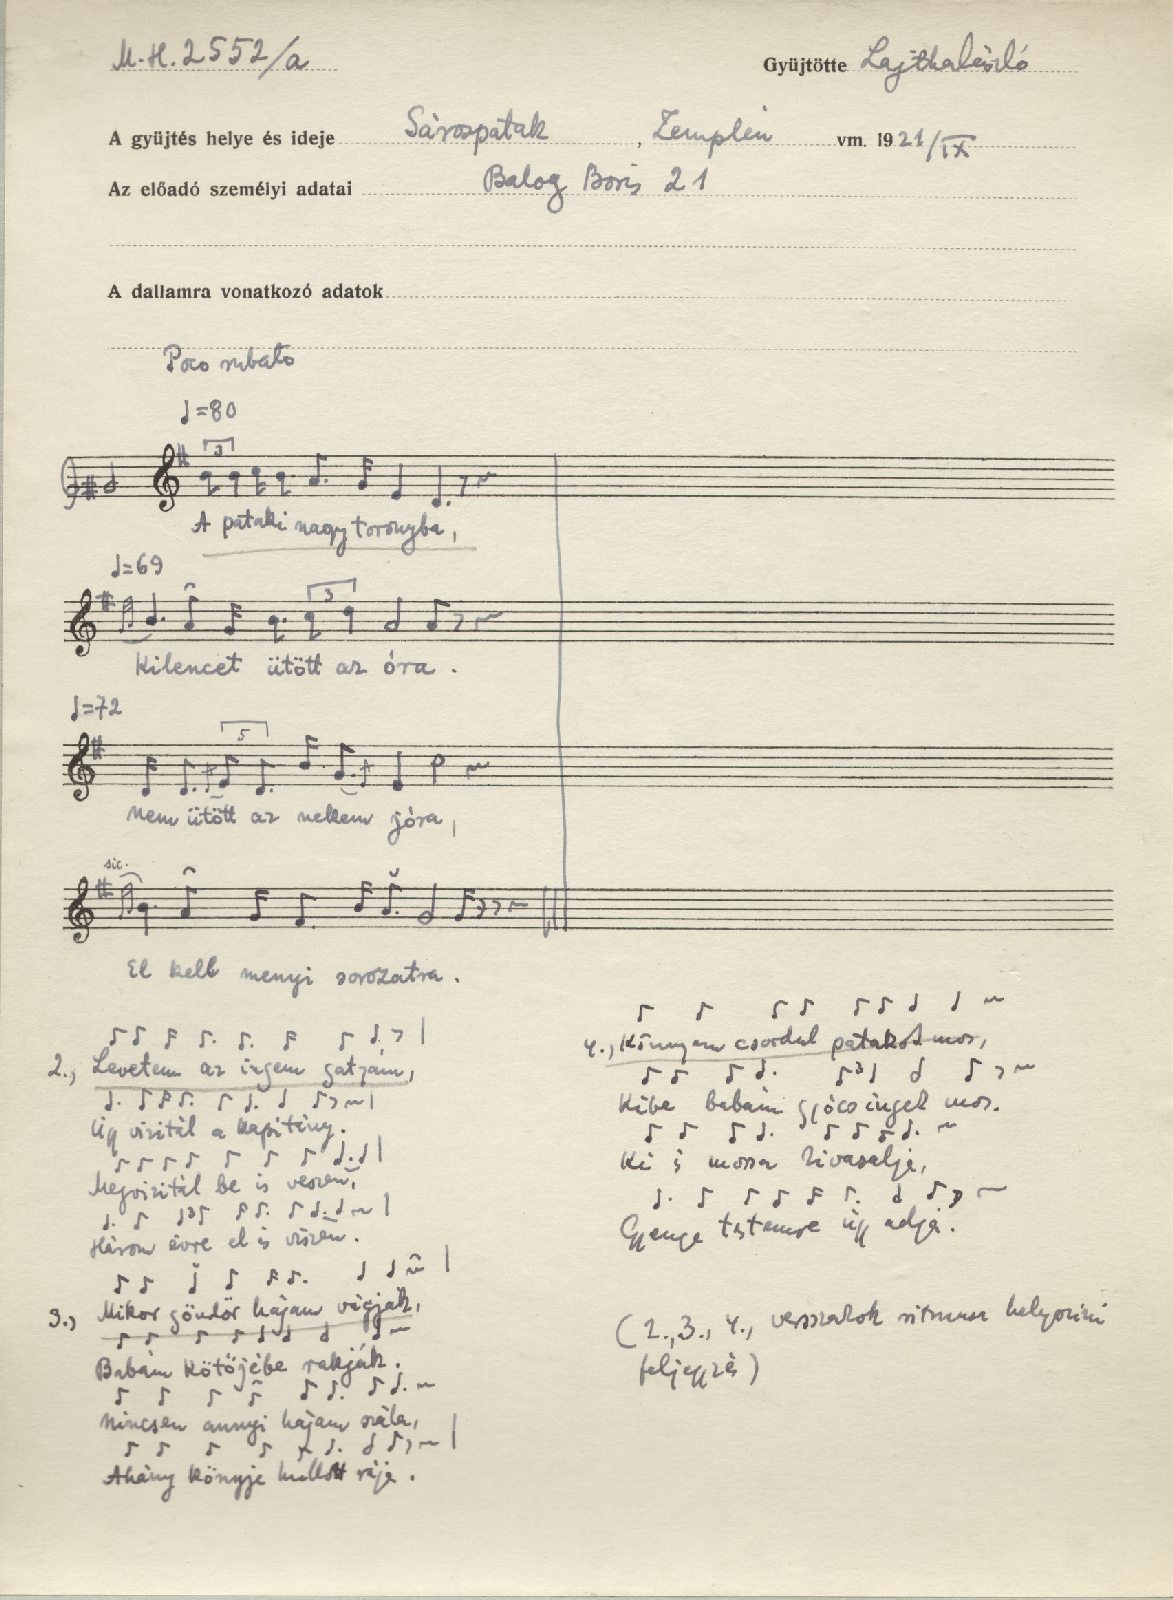 M.H. 2552/a
Gyüjtötte Lajtha László
A gyüjtés helye és ideje Sárospatak, Zemplén vm. 1921/IX
Az előadó személyi adatai Balog Boris 21
A dallamra vonatkozó adatok
Poco rubato
=80
3
A pataki nagy toronyba,
=69
3
Kilencet ütött az óra.
=72
5
Nem ütött az nekem jóra,
sic.
El kell menyi sorozatra.
2., Levetem az ingem gatyám,
Úgy vizitál a kapitány.
Megvizitál be is veszen,
Három évre el is viszen.
3., Mikor göndör hajam vágják,
Babám kötőjébe rakják.
Nincsen annyi hajam szála,
Ahány könyje hullott rája.
4., Könnyem csordul patakot mos,
Kibe babám gyócsinget mos.
Ki is mossa kivasalja,
Gyenge testemre úgy adja.
(2., 3., 4., versszakok ritmusa helyszíni
feljegyzés)